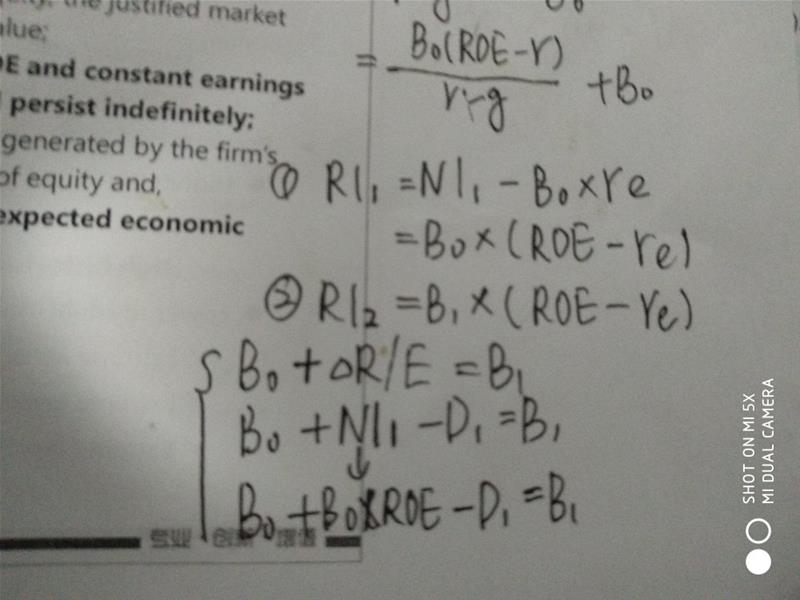 the justified market
= B₀(ROE-r) / r-g + B₀
E and constant earnings
persist indefinitely;
generated by the firm's
of equity and,
expected economic
① RI₁ = NI₁ - B₀ × re
= B₀ × (ROE - re)
② RI₂ = B₁ × (ROE - re)
B₀ + △R/E = B₁
B₀ + NI₁ - D₁ = B₁
↓
B₀ + B₀ × ROE - D₁ = B₁
专业 创新 增值
SHOT ON MI 5X
MI DUAL CAMERA